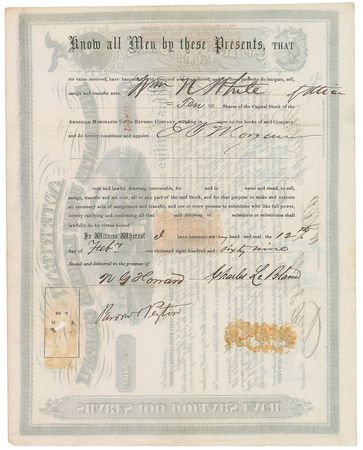 Know all Men by these Presents, THAT
for value received, have bargained, sold, assigned and transferred, and by these presents do bargain, sell,
assign and transfer unto Wm N White of Utica
Ten Shares of the Capital Stock of the
AMERICAN MERCHANTS UNION EXPRESS COMPANY, standing in name on the books of said Company,
and do hereby constitute and appoint E B Morgan
true and lawful Attorney, irrevocable, for and in name and stead, to sell,
assign, transfer and set over, all or any part of the said Stock, and for that purpose to make and execute
all necessary acts of assignment and transfer, and one or more persons to substitute with like full power,
hereby ratifying and confirming all that said Attorney or substitute or substitutes shall
lawfully do by virtue hereof.
In Witness Whereof I have hereunto set my hand and seal the 12th
day of Feby one thousand eight hundred and sixty nine
Sealed and delivered in the presence of
N G Howard Charles Le Blanc
SHARES 100 DOLLARS EACH